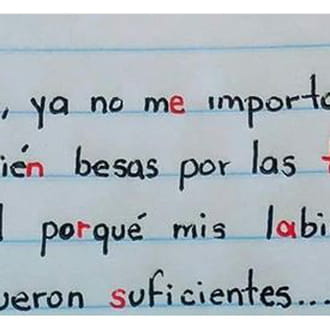 , ya no me importa
ién besas por las
porqué mis labi
ueron suficientes...